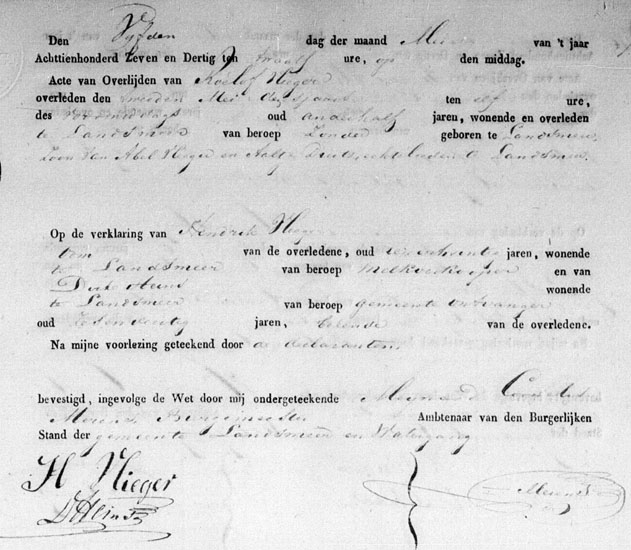 Den Vyfden dag der maand Mei van 't jaar
Achttienhonderd Zeven en Dertig ten twaalf ure, op den middag.
Acte van Overlijden van Roelof Vlieger
overleden den tweeden Mei dezes jaars ten elf ure,
des oud anderhalf jaren, wonende en overleden
te Landsmeer van beroep Zonder geboren te Landsmeer,
Zoon van Abel Vlieger en Aaltje Echtelieden te Landsmeer
Op de verklaring van Hendrik Vlieger
Oom van de overledene, oud jaren, wonende
te Landsmeer van beroep Melkverkooper en van
Dirk Heins wonende
te Landsmeer van beroep gemeente ontvanger
oud jaren, bekende van de overledene.
Na mijne voorlezing geteekend door de declaranten.
bevestigd, ingevolge de Wet door mij ondergeteekende
Meurs Burgemeester Ambtenaar van den Burgerlijken
Stand der gemeente Landsmeer en Watergang
H Vlieger
D Heins Meurs